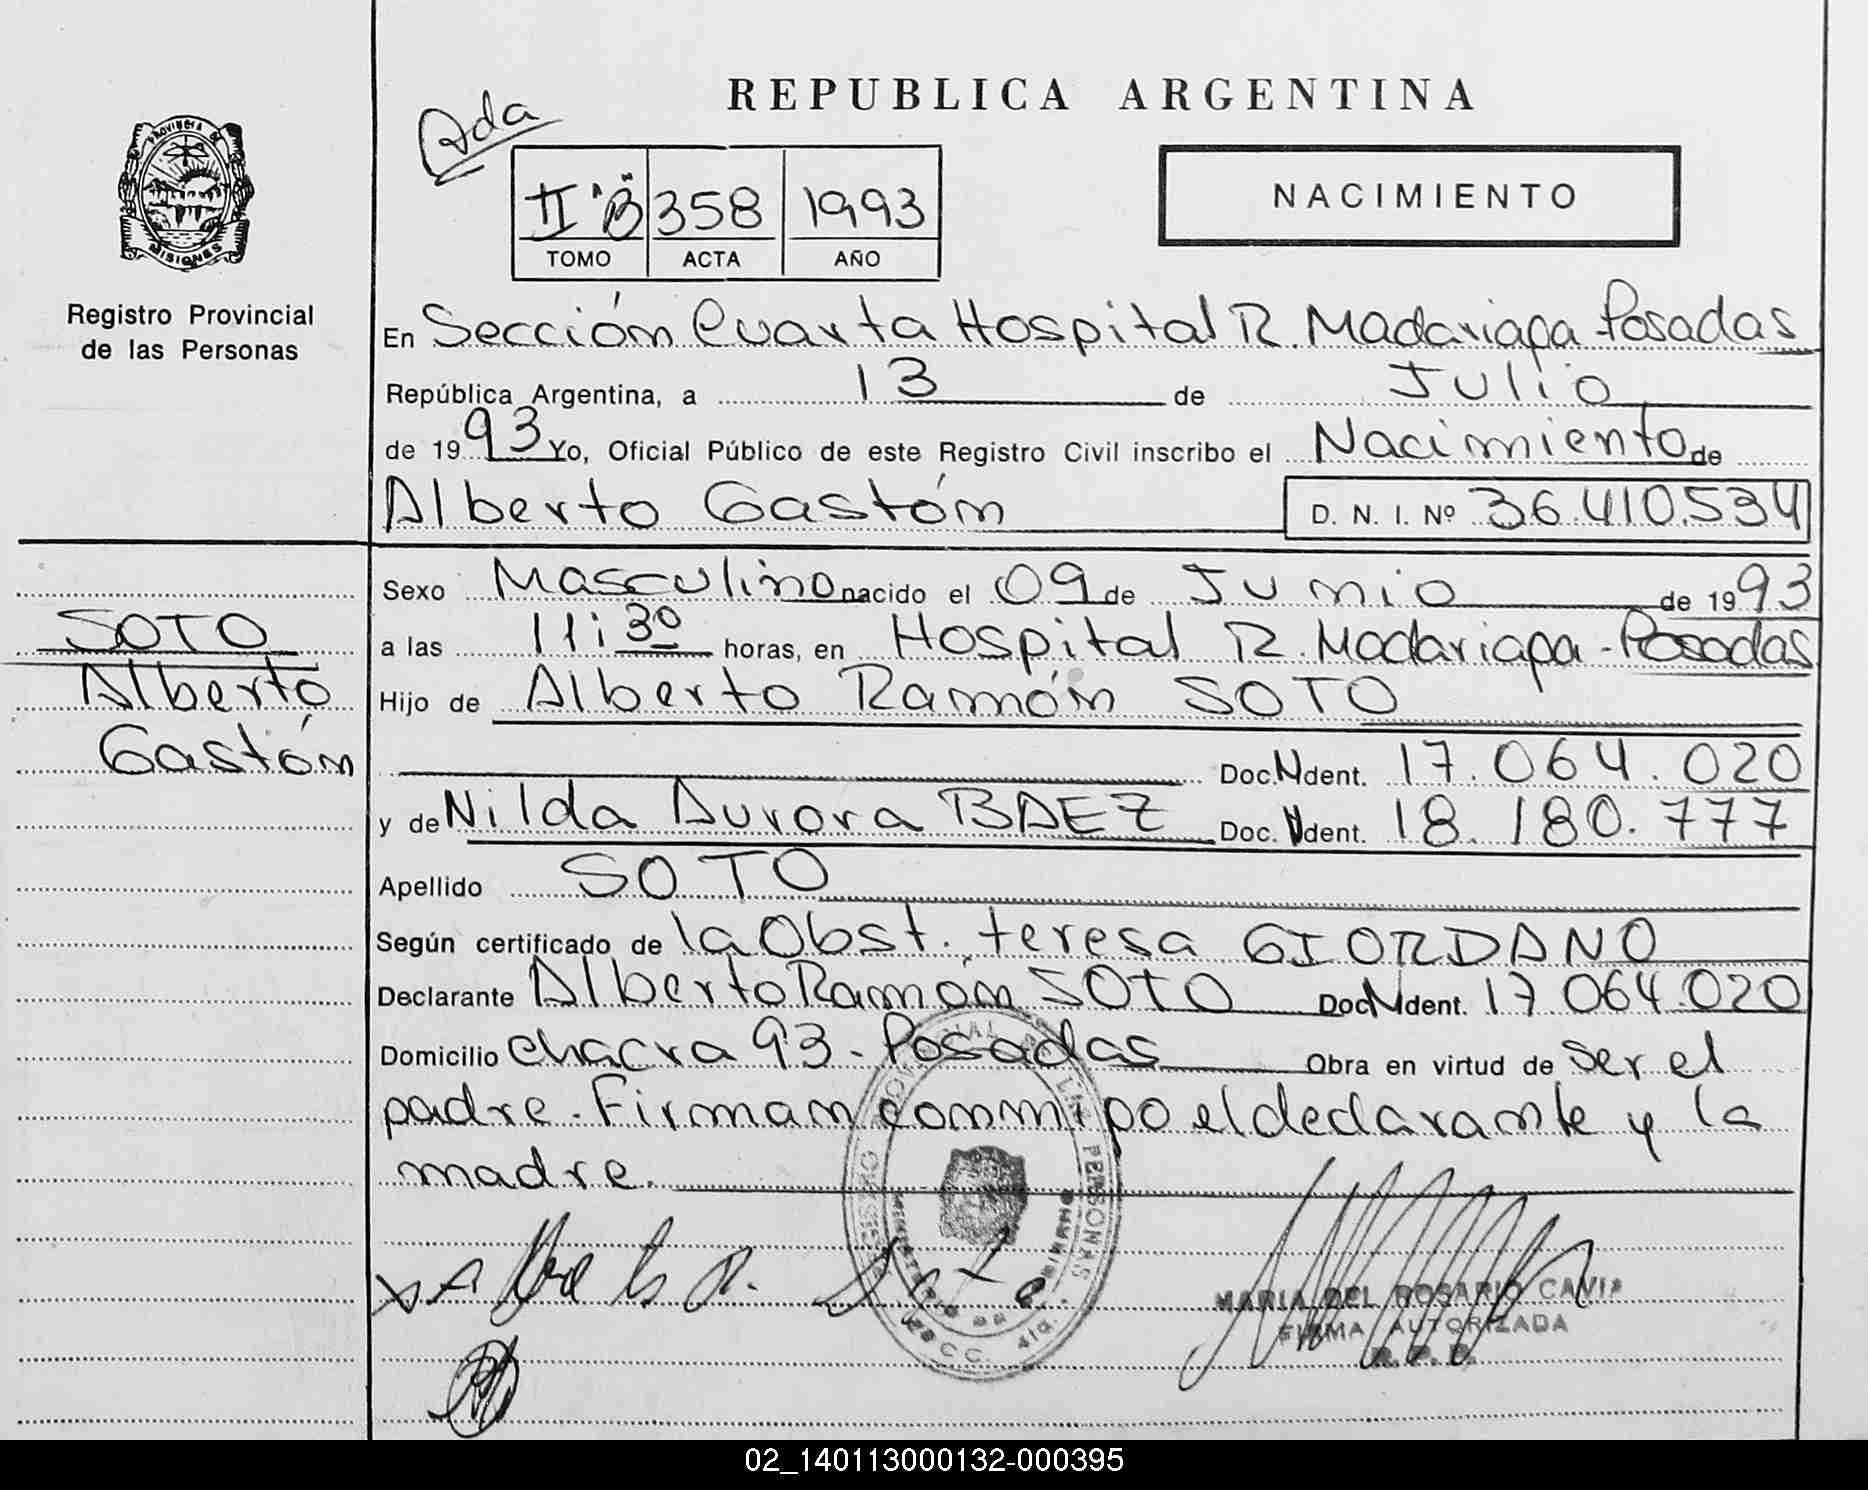 REPUBLICA ARGENTINA
Ada
PROVINCIA DE
MISIONES
II "B" 358 1993
TOMO ACTA AÑO
NACIMIENTO
Registro Provincial
de las Personas
En Sección Cuarta Hospital R. Madariaga Posadas
República Argentina, a 13 de Julio
de 1993 Yo, Oficial Público de este Registro Civil inscribo el Nacimiento de
Alberto Gastón D. N. I. Nº 36.410.534
SOTO
Alberto
Gastón
Sexo Masculino nacido el 09 de Junio de 1993
a las 11:30 horas, en Hospital R. Madariaga - Posadas
Hijo de Alberto Ramón SOTO
Doc. Ndent. 17.064.020
y de Nilda Aurora BAEZ Doc. Ndent. 18.180.777
Apellido SOTO
Según certificado de la Obst. teresa GIORDANO
Declarante Alberto Ramón SOTO Doc Ndent. 17 064.020
Domicilio chacra 93 - Posadas Obra en virtud de ser el
padre. Firman conmigo el declarante y la
madre.
PERSONAS
MARIA DEL ROSARIO CAVIA
FIRMA AUTORIZADA
R. P. P.
02_140113000132-000395